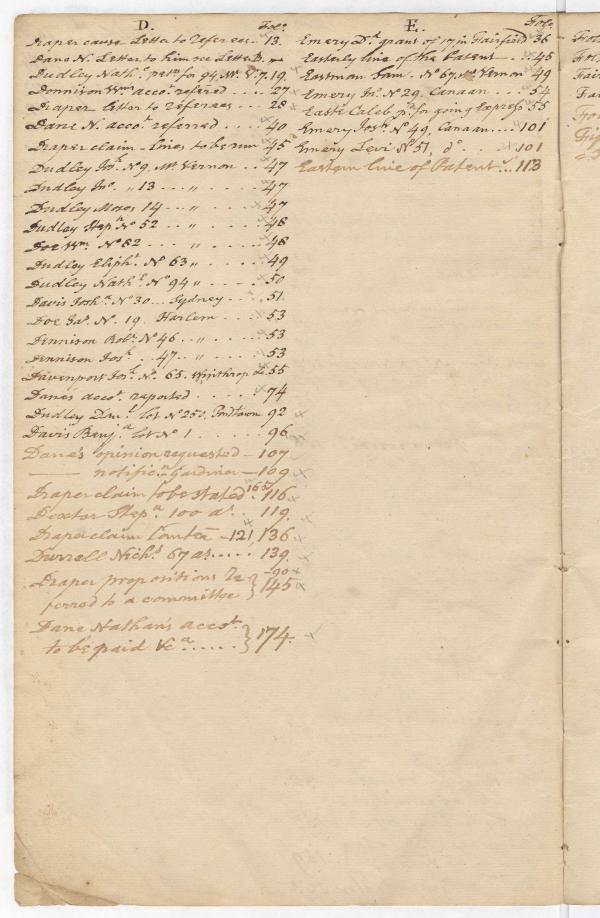 D. Fol:
Draper cause Letter to referees .. 13.
Dane N. Letter to him see Letter B.
Dudley Nath.l petn for 94 Mt. V. 7. 19.
Dennison Wm acco.t refered .... 27
Draper letter to referees .... 28
Dane N. acco.t referred .... 40
Draper claim - lines to be run 45
Dudley Jos. No 9. Mt. Vernon .. 47
Dudley Jno. " 13 ... " .... 47
Dudley Moses 14 ... " .... 47
Dudley Stepn No 52 .. " .... 48
Doe Wm. No 82 ... " .... 48
Dudley Eliph.t No 63 " .... 49
Dudley Nath.l No 94 " .... 50
Davis Josh.a No 30 ... Sydney .... 51.
Doe Jas. No. 19. Harlem .... 53
Dennison Robt. No 46 .. " .... 53
Dennison Jos. .. 47 .. " .... 53
Davenport Jos. No. 65. Winthrop 55
Dane's acco.t reported .... 74
Dudley Danl. lot No 250. Pondtown 92
Davis Benj.a lot No 1 .... 96
Dane's opinion requested - 107
—— notific.n Gardiner - 109
Draper claim to be stated 165 116
Dexter Stepn 100 as. .. 119.
Draper claim Comtee - 121, 136
Durrell Nich.s 67 as .... 139.
Draper propositions re - 90
ferred to a committee } 145
Dane Nathan's acco.t
to be paid &c.a ..... } 174.
E. Fol:
Emery D.l grant of 17 in Fairfield 36
Easterly line of the Patent ... 45
Eastman Sam. No 67. Mt. Vernon 49
Emery Jn. No 29. Canaan ... 54
Easte Caleb pn for going Express 55
Emery Josh. No 49. Canaan ... 101
Emery Levi No 51. do. ... 101
Eastern line of Patent ... 113